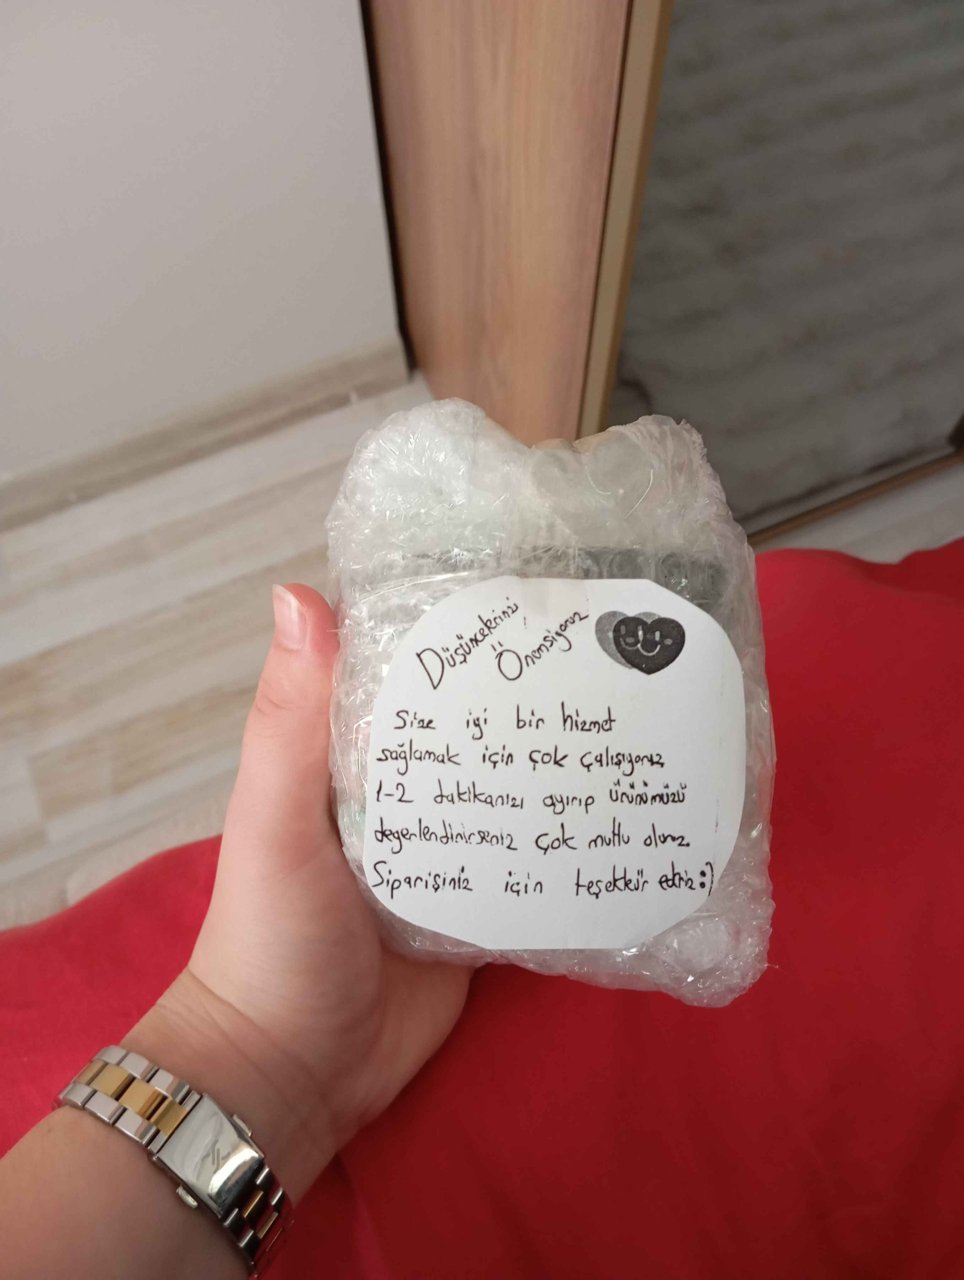 Düşüncelerinizi
Önemsiyoruz
Size iyi bir hizmet
sağlamak için çok çalışıyoruz
1-2 dakikanızı ayırıp ürünümüzü
değerlendirirseniz çok mutlu oluruz.
Siparişiniz için teşekkür ederiz :)